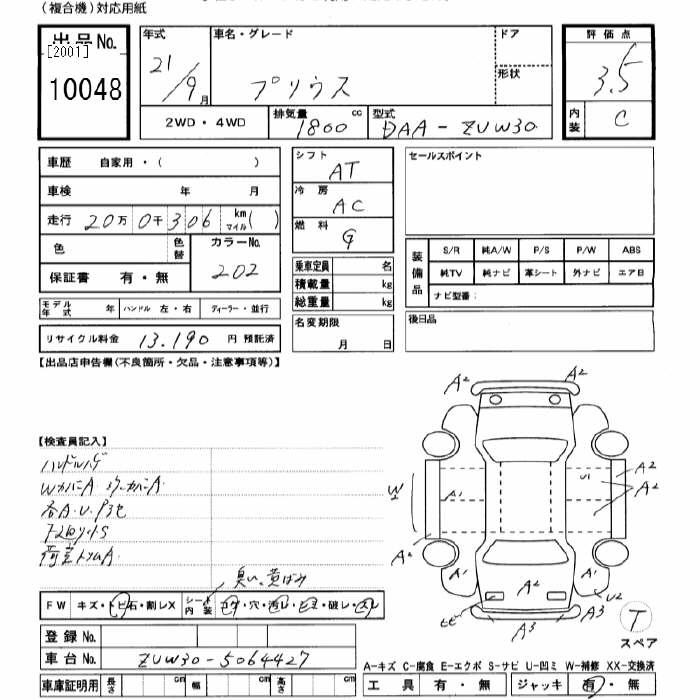 (複合機)対応用紙
出品No.
[2001]
10048
年式
21/9月
車名・グレード
プリウス
ドア
形状
評価点
3.5
内装
C
2WD・4WD
排気量
1800 cc
型式
DAA-ZUW30
車歴 自家用・( )
車検 年 月
走行 20万0千306 km マイル( )
色
色替
カラーNo.
202
保証書 有・無
モデル年式 年 ハンドル 左・右 ディーラー・並行
リサイクル料金 13.190 円 預託済
シフト
AT
冷房
AC
燃料
G
乗車定員 名
積載量 kg
総重量 kg
名変期限
月 日
セールスポイント
装備品
S/R 純A/W P/S P/W ABS
純TV 純ナビ 革シート 外ナビ エアB
ナビ型番:
後日品
【出品店申告欄(不良箇所・欠品・注意事項等)】
【検査員記入】
ハンドルハゲ
WカバーA
各A.U.
臭い、黄ばみ
FW キズ・トビ石・割レX
シート内装
コゲ・穴・汚レ・破レ・スレ
登録No.
車台No. ZUW30-5064427
車庫証明用 長さ cm 幅 cm 高さ cm
A2
A2
A2
A2
A2
U1
A1
W
A2
A1
A1
U2
A2
A2
A3
A3
T
スペア
A-キズ C-腐食 E-エクボ S-サビ U-凹ミ W-補修 XX-交換済
工具 有・無 ジャッキ 有・無